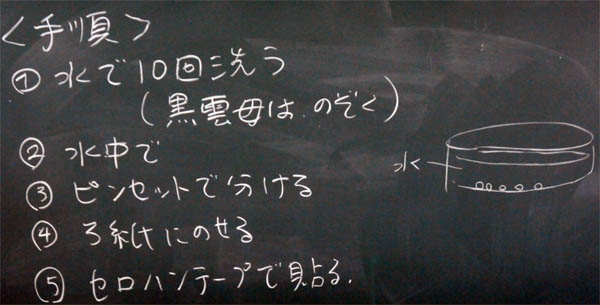 <手順>
① 水で10回洗う
(黒雲母は、のぞく)
② 水中で
③ ピンセットで分ける
④ ろ紙にのせる
⑤ セロハンテープで貼る.
水